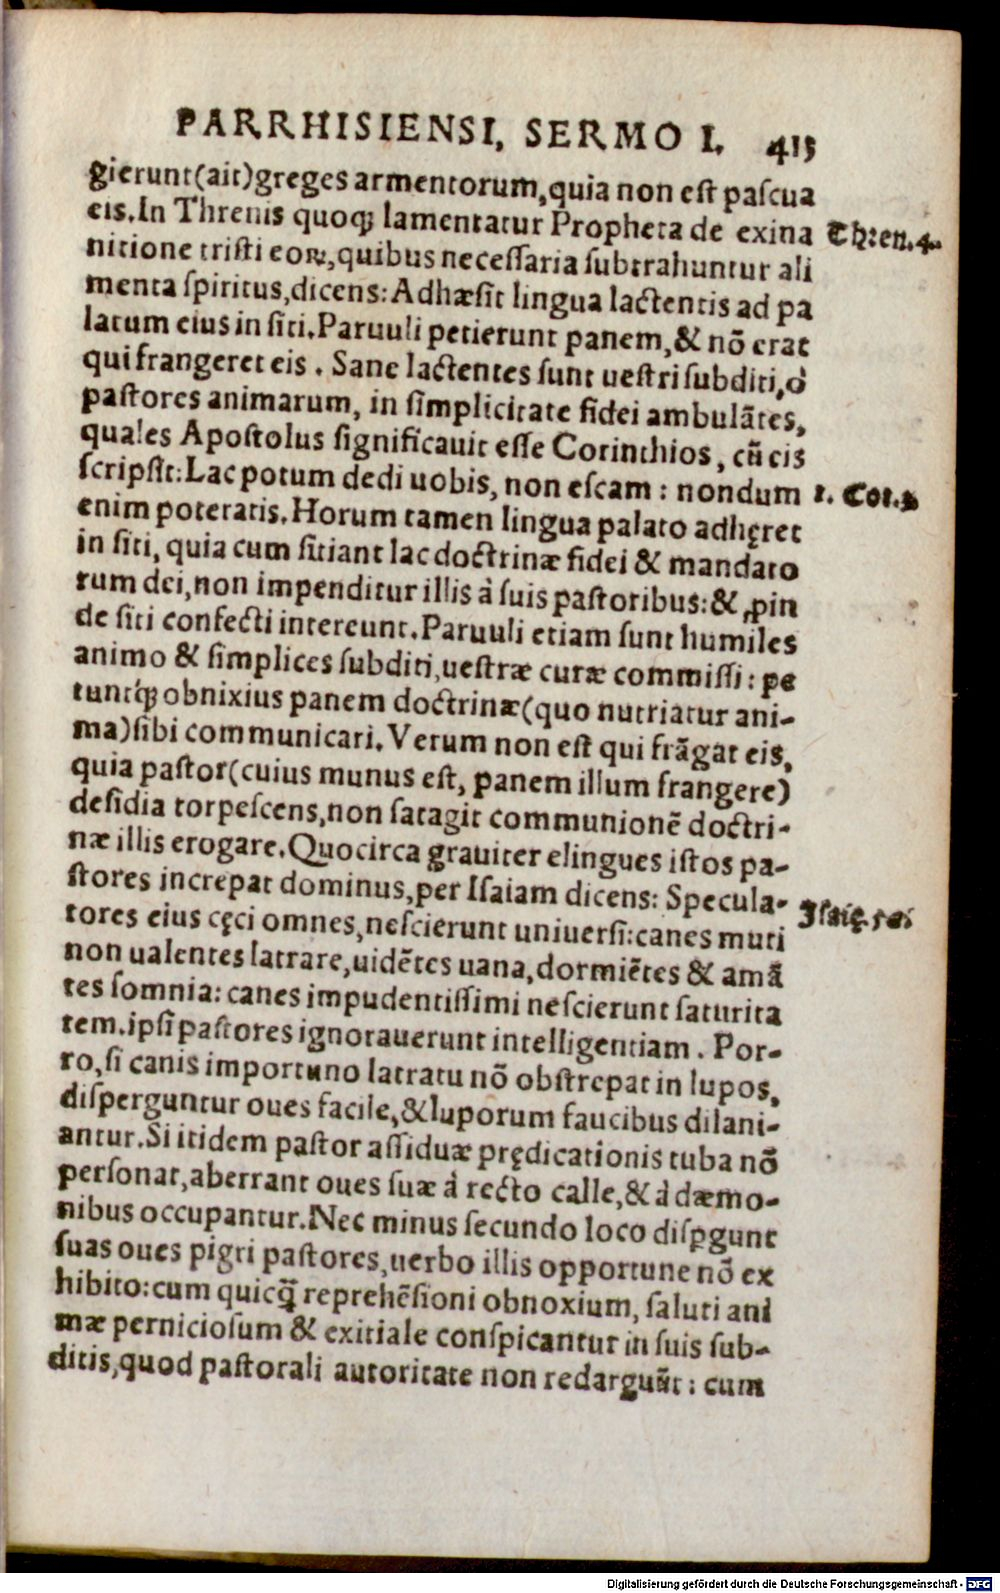 PARRHISIENSI, SERMO I. 415
gierunt(ait)greges armentorum,quia non est pascua
eis.In Threnis quoqꝫ lamentatur Propheta de exina Thren.4.
nitione tristi eoꝝ,quibus necessaria subtrahuntur ali
menta spiritus,dicens:Adhæsit lingua lactentis ad pa
latum eius in siti.Paruuli petierunt panem,& nõ erat
qui frangeret eis. Sane lactentes sunt uestri subditi,ò
pastores animarum, in simplicitate fidei ambulãtes,
quales Apostolus significauit esse Corinthios, cũ eis
scripsit:Lac potum dedi uobis, non escam: nondum 1. Cor.3
enim poteratis.Horum tamen lingua palato adhęret
in siti, quia cum sitiant lac doctrinæ fidei & mandato
rum dei,non impenditur illis à suis pastoribus:& ꝓin
de siti confecti intereunt.Paruuli etiam sunt humiles
animo & simplices subditi,uestræ curæ commissi: pe
tuntqꝫ obnixius panem doctrinæ(quo nutriatur ani-
ma)sibi communicari.Verum non est qui frãgat eis,
quia pastor(cuius munus est, panem illum frangere)
desidia torpescens,non satagit communionẽ doctri-
næ illis erogare.Quocirca grauiter elingues istos pa-
stores increpat dominus,per Isaiam dicens: Specula- Isaię.56.
tores eius cęci omnes,nescierunt uniuersi:canes muti
non ualentes latrare,uidẽtes uana,dormiẽtes & amã
tes somnia: canes impudentissimi nescierunt saturita
tem.ipsi pastores ignorauerunt intelligentiam. Por-
ro,si canis importuno latratu nõ obstrepat in lupos,
disperguntur oues facile,&luporum faucibus dilani-
antur.Si itidem pastor assiduæ prędicationis tuba nõ
personat,aberrant oues suæ à recto calle,& à dæmo-
nibus occupantur.Nec minus secundo loco disꝑgunt
suas oues pigri pastores,uerbo illis opportune nõ ex
hibito:cum quicq̃ reprehẽsioni obnoxium, saluti ani
mæ perniciosum & exitiale conspicantur in suis sub-
ditis,quod pastorali autoritate non redarguũt: cum
Digitalisierung gefördert durch die Deutsche Forschungsgemeinschaft - DFG